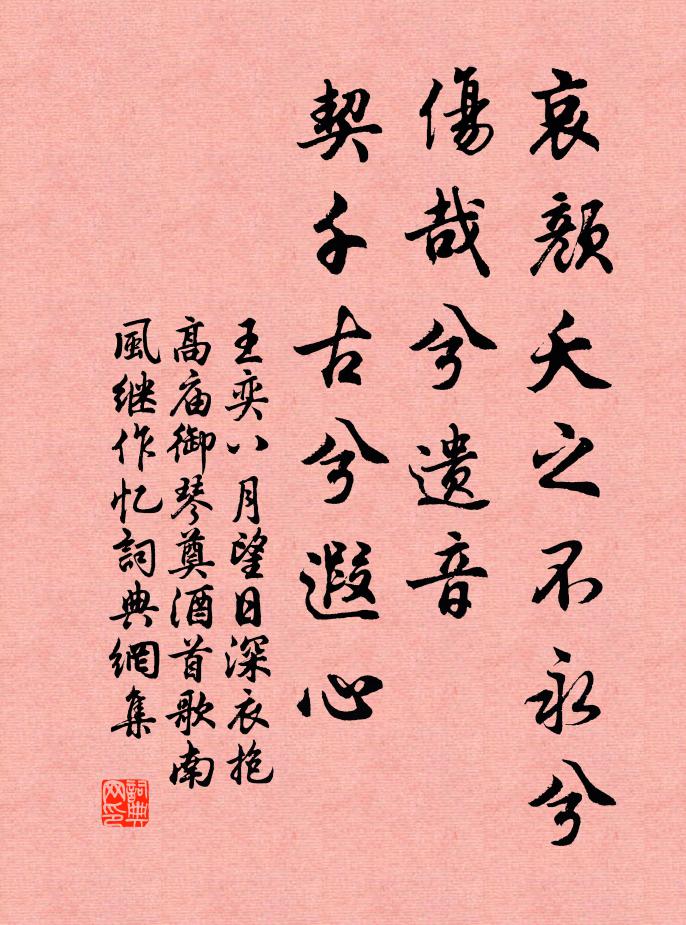 哀顏夭之不永兮
傷哉兮遺音
契千古兮遐心
王奕八月望日深衣抱
高庙御琴奠酒首歌南
風继作忆詞典網集
詞典网印